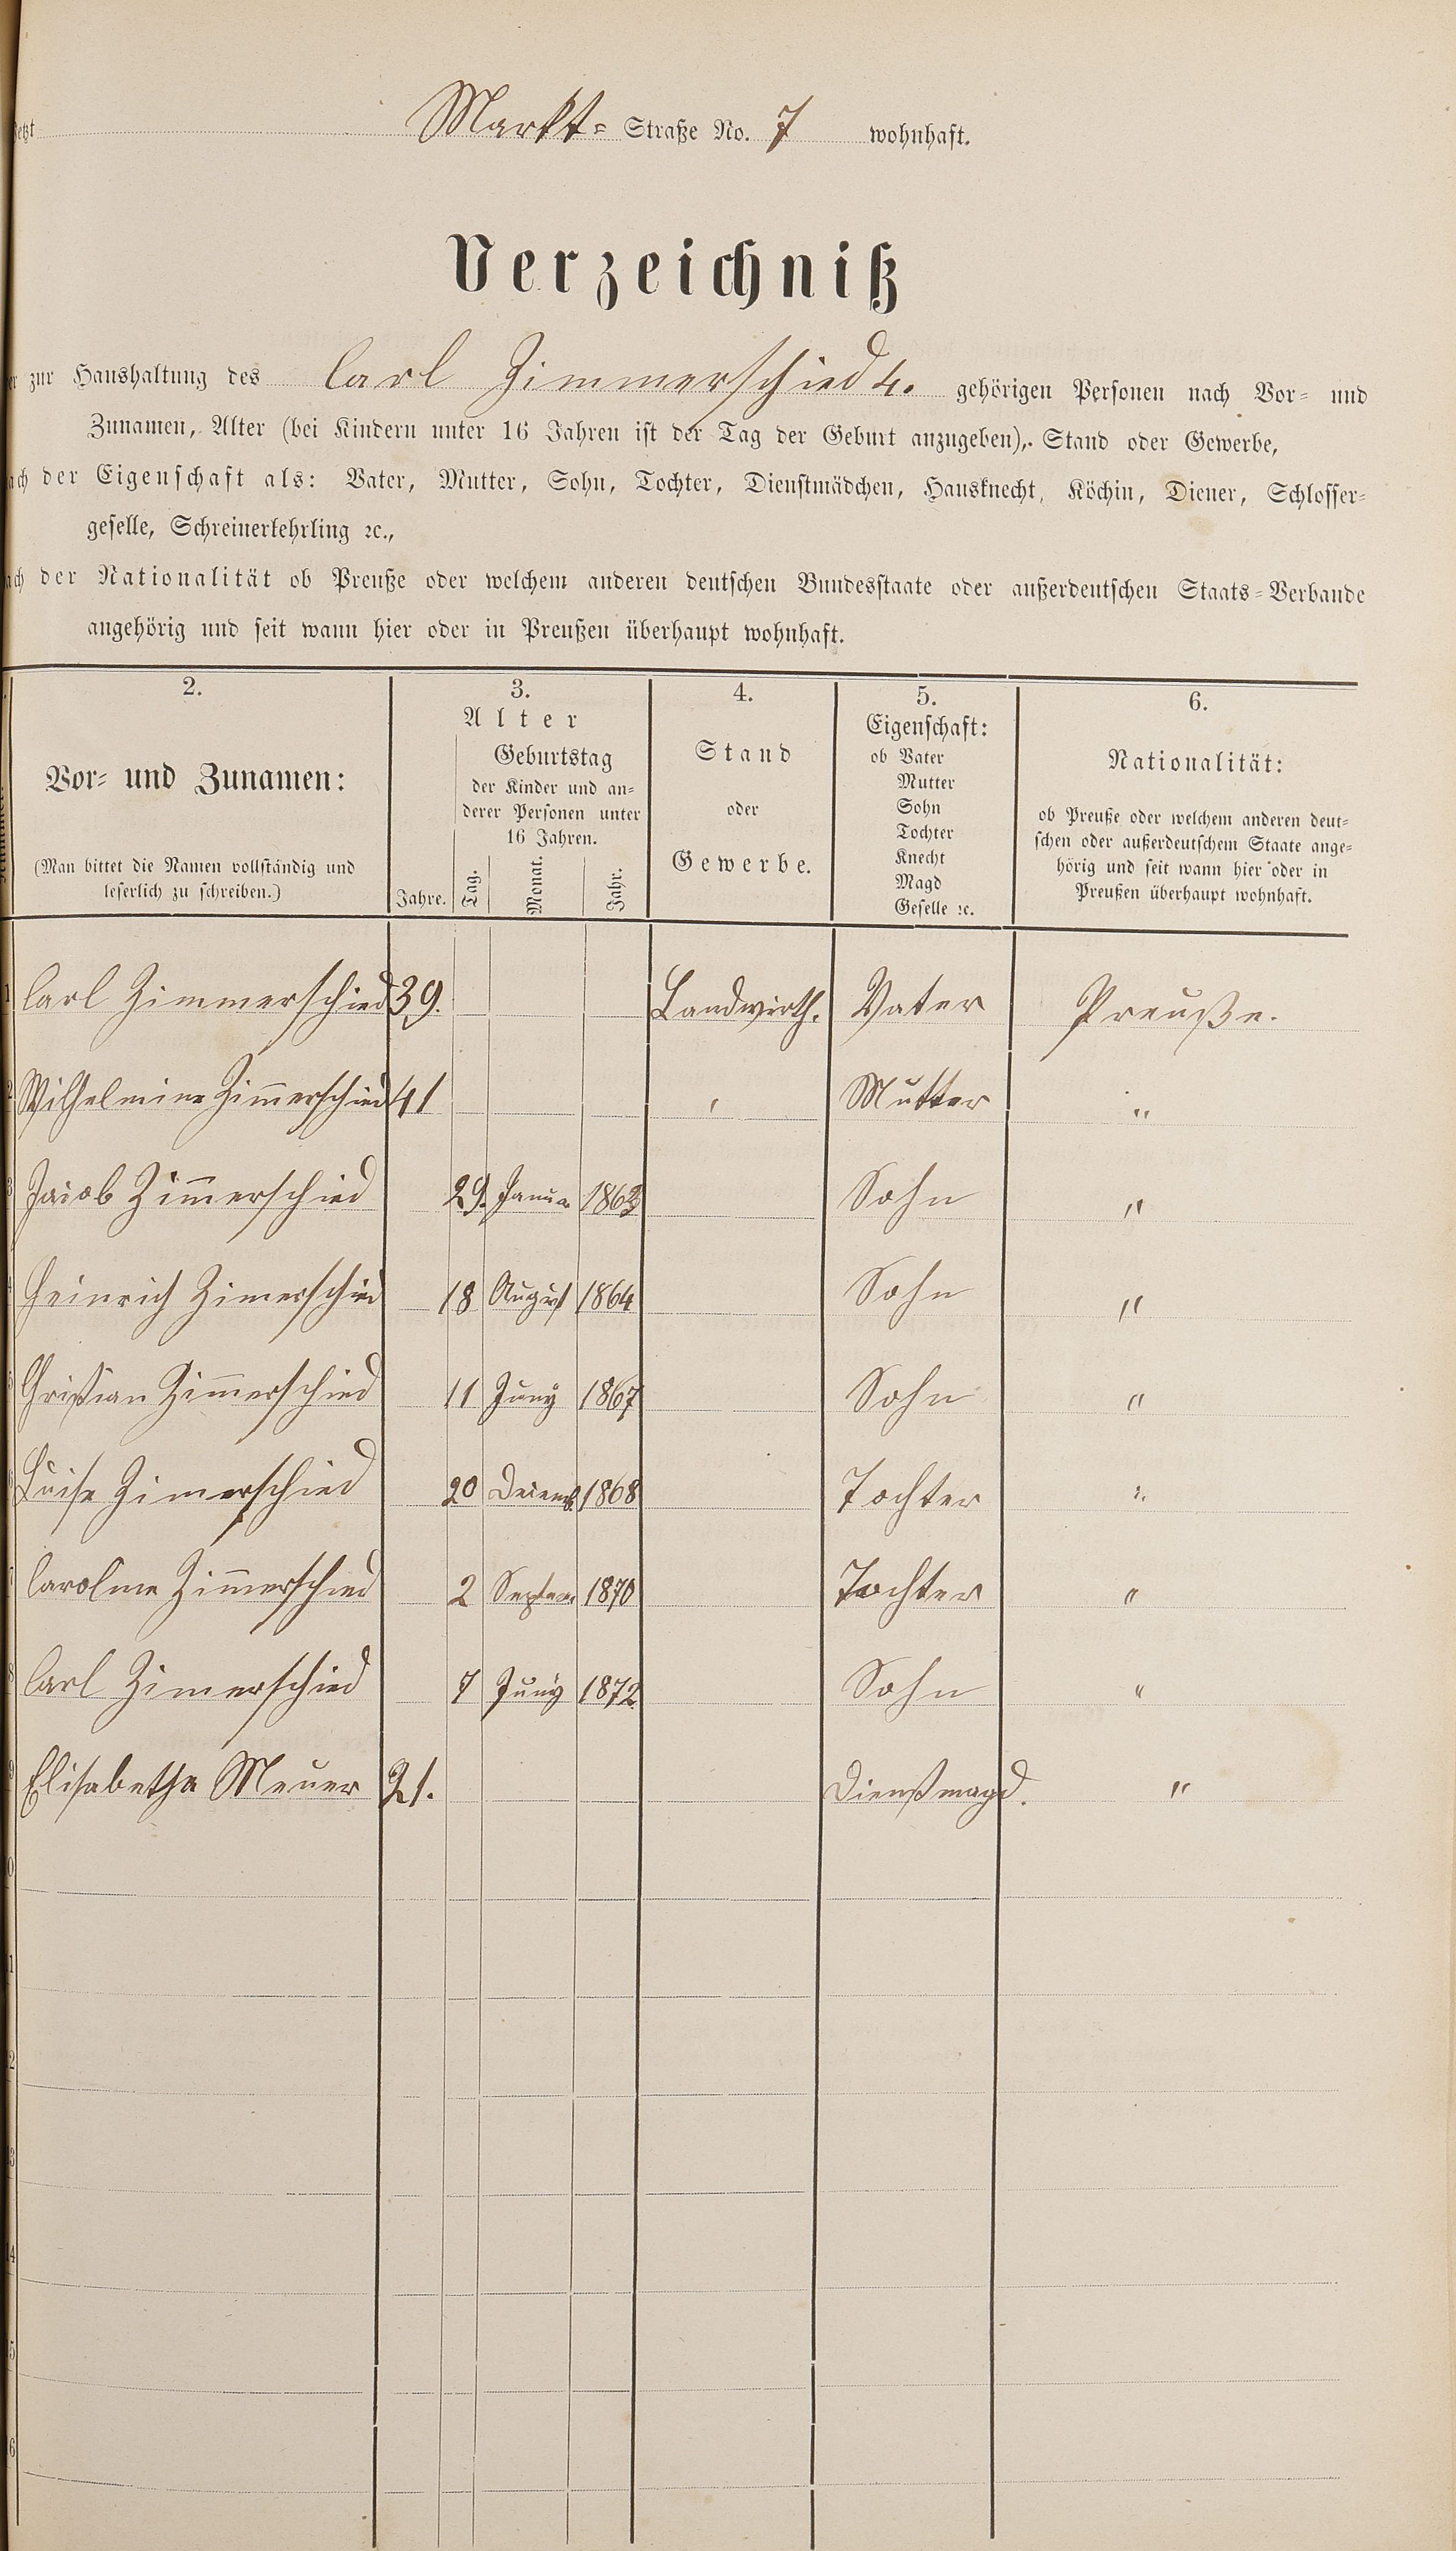 jetzt Markt- Straße No. 7 wohnhaft.
Verzeichniß
der zur Haushaltung des Carl Zimmerschied 4. gehörigen Personen nach Vor- und
Zunamen, Alter (bei Kindern unter 16 Jahren ist der Tag der Geburt anzugeben), Stand oder Gewerbe,
nach der Eigenschaft als: Vater, Mutter, Sohn, Tochter, Dienstmädchen, Hausknecht, Köchin, Diener, Schlosser-
geselle, Schreinerlehrling ꝛc.,
nach der Nationalität ob Preuße oder welchem anderen deutschen Bundesstaate oder außerdeutschen Staats-Verbande
angehörig und seit wann hier oder in Preußen überhaupt wohnhaft.
2. 3. 4. 5. 6.
Vor- und Zunamen:
(Man bittet die Namen vollständig und
leserlich zu schreiben.)
Alter
Jahre.
Geburtstag
der Kinder und an-
derer Personen unter
16 Jahren.
Tag. Monat. Jahr.
Stand
oder
Gewerbe.
Eigenschaft:
ob Vater
Mutter
Sohn
Tochter
Knecht
Magd
Geselle ꝛc.
Nationalität:
ob Preuße oder welchem anderen deut-
schen oder außerdeutschem Staate ange-
hörig und seit wann hier oder in
Preußen überhaupt wohnhaft.
1 Carl Zimmerschied 39. Landwirth. Vater Preuße.
2 Wilhelmine Zim̄erschied 41 " Mutter "
3 Jacob Zim̄erschied 29. Janua 1863 Sohn "
4 Heinrich Zimerschied 18 August 1864 Sohn "
5 Christian Zim̄erschied 11 Juny 1867 Sohn "
6 Luise Zimerschied 20 Decemb. 1868 Tochter "
7 Caroline Zim̄erschied 2 Septem 1870 Tochter "
8 Carl Zimerschied 7 Juny 1872 Sohn "
9 Elisabetha Meuer 21. Dienstmagd. "
0
1
2
3
14
5
6